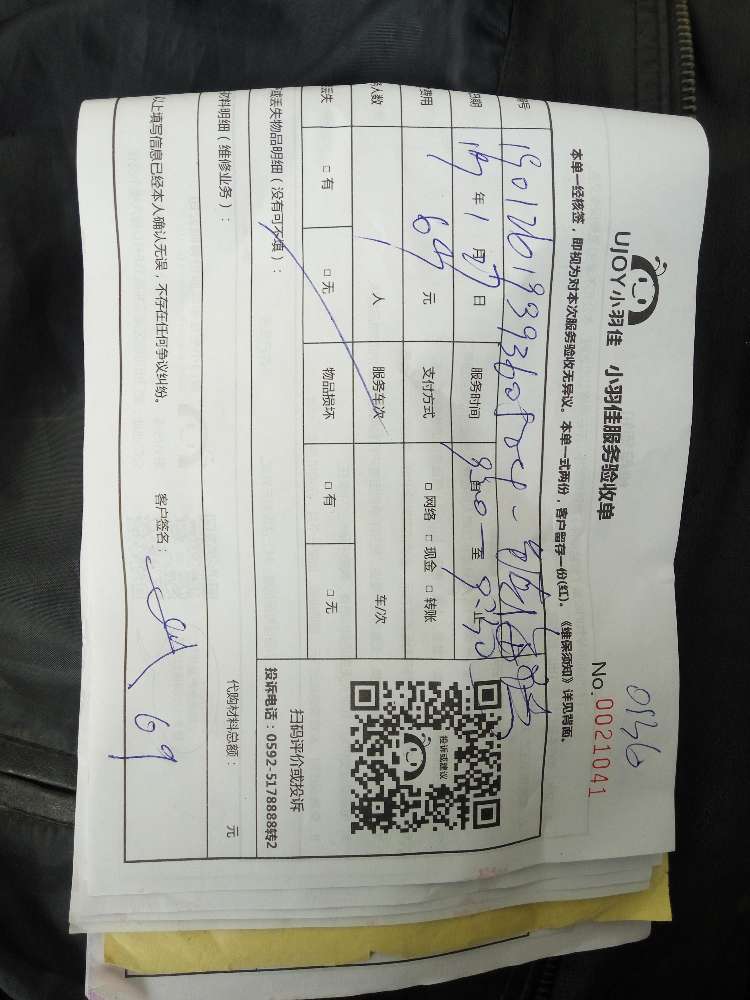 UJOY小羽佳 小羽佳服务验收单
0536
No. 0021041
本单一经核签，即视为对本次服务验收无异议。本单一式两份，客户留存一份(红)。《维保须知》详见背面。
号
日期 19年1月27日 服务时间 自 至 止
费用 69元 支付方式 □网络 □现金 □转账
人数 1人 服务车次 车/次
丢失 □有 □无 物品损坏 □有 □无
投诉或建议
扫码评价或投诉
投诉电话：0592-5178888转2
或丢失物品明细（没有可不填）：
材料明细（维修业务）： 代购材料总额： 元
以上填写信息已经本人确认无误，不存在任何争议纠纷。 客户签名： 69